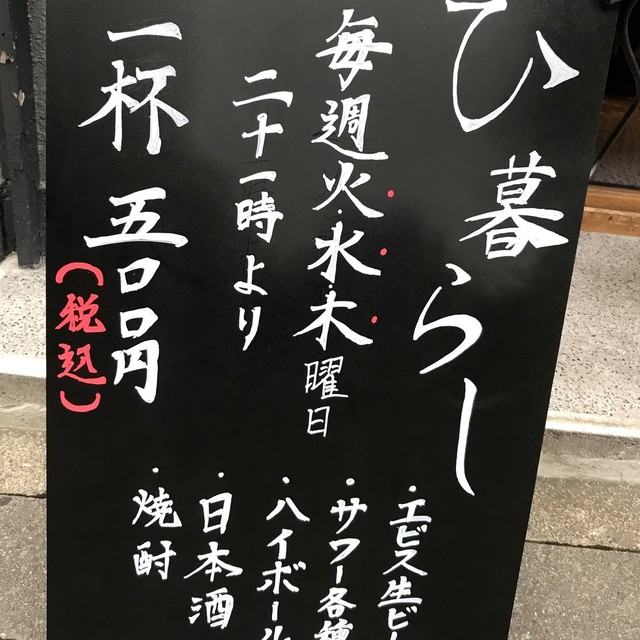 ひ暮らし
毎週火・水・木曜日
二十一時より
一杯 五〇〇円
(税込)
・エビス生ビー
・サワー各種
・ハイボール
・日本酒
・焼酎